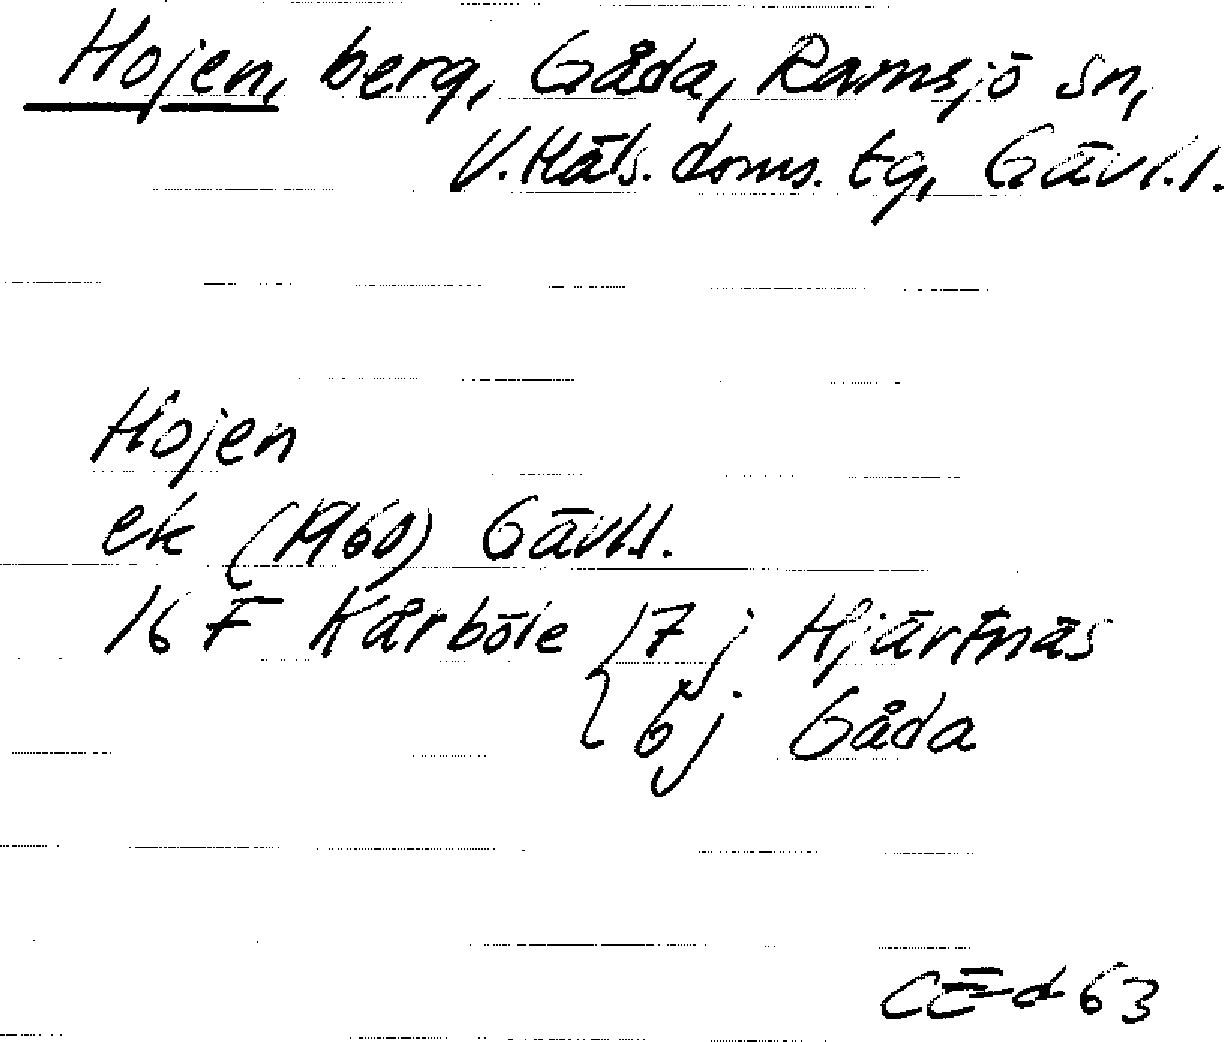 Hojen, berg, Gåda, Ramsjö sn,
V. Häls. doms. tg, Gävl.l.
Hojen
ek (1960) Gävl.l.
16 F Kårböle 7 j Hjärtnäs
6 j Gåda
63